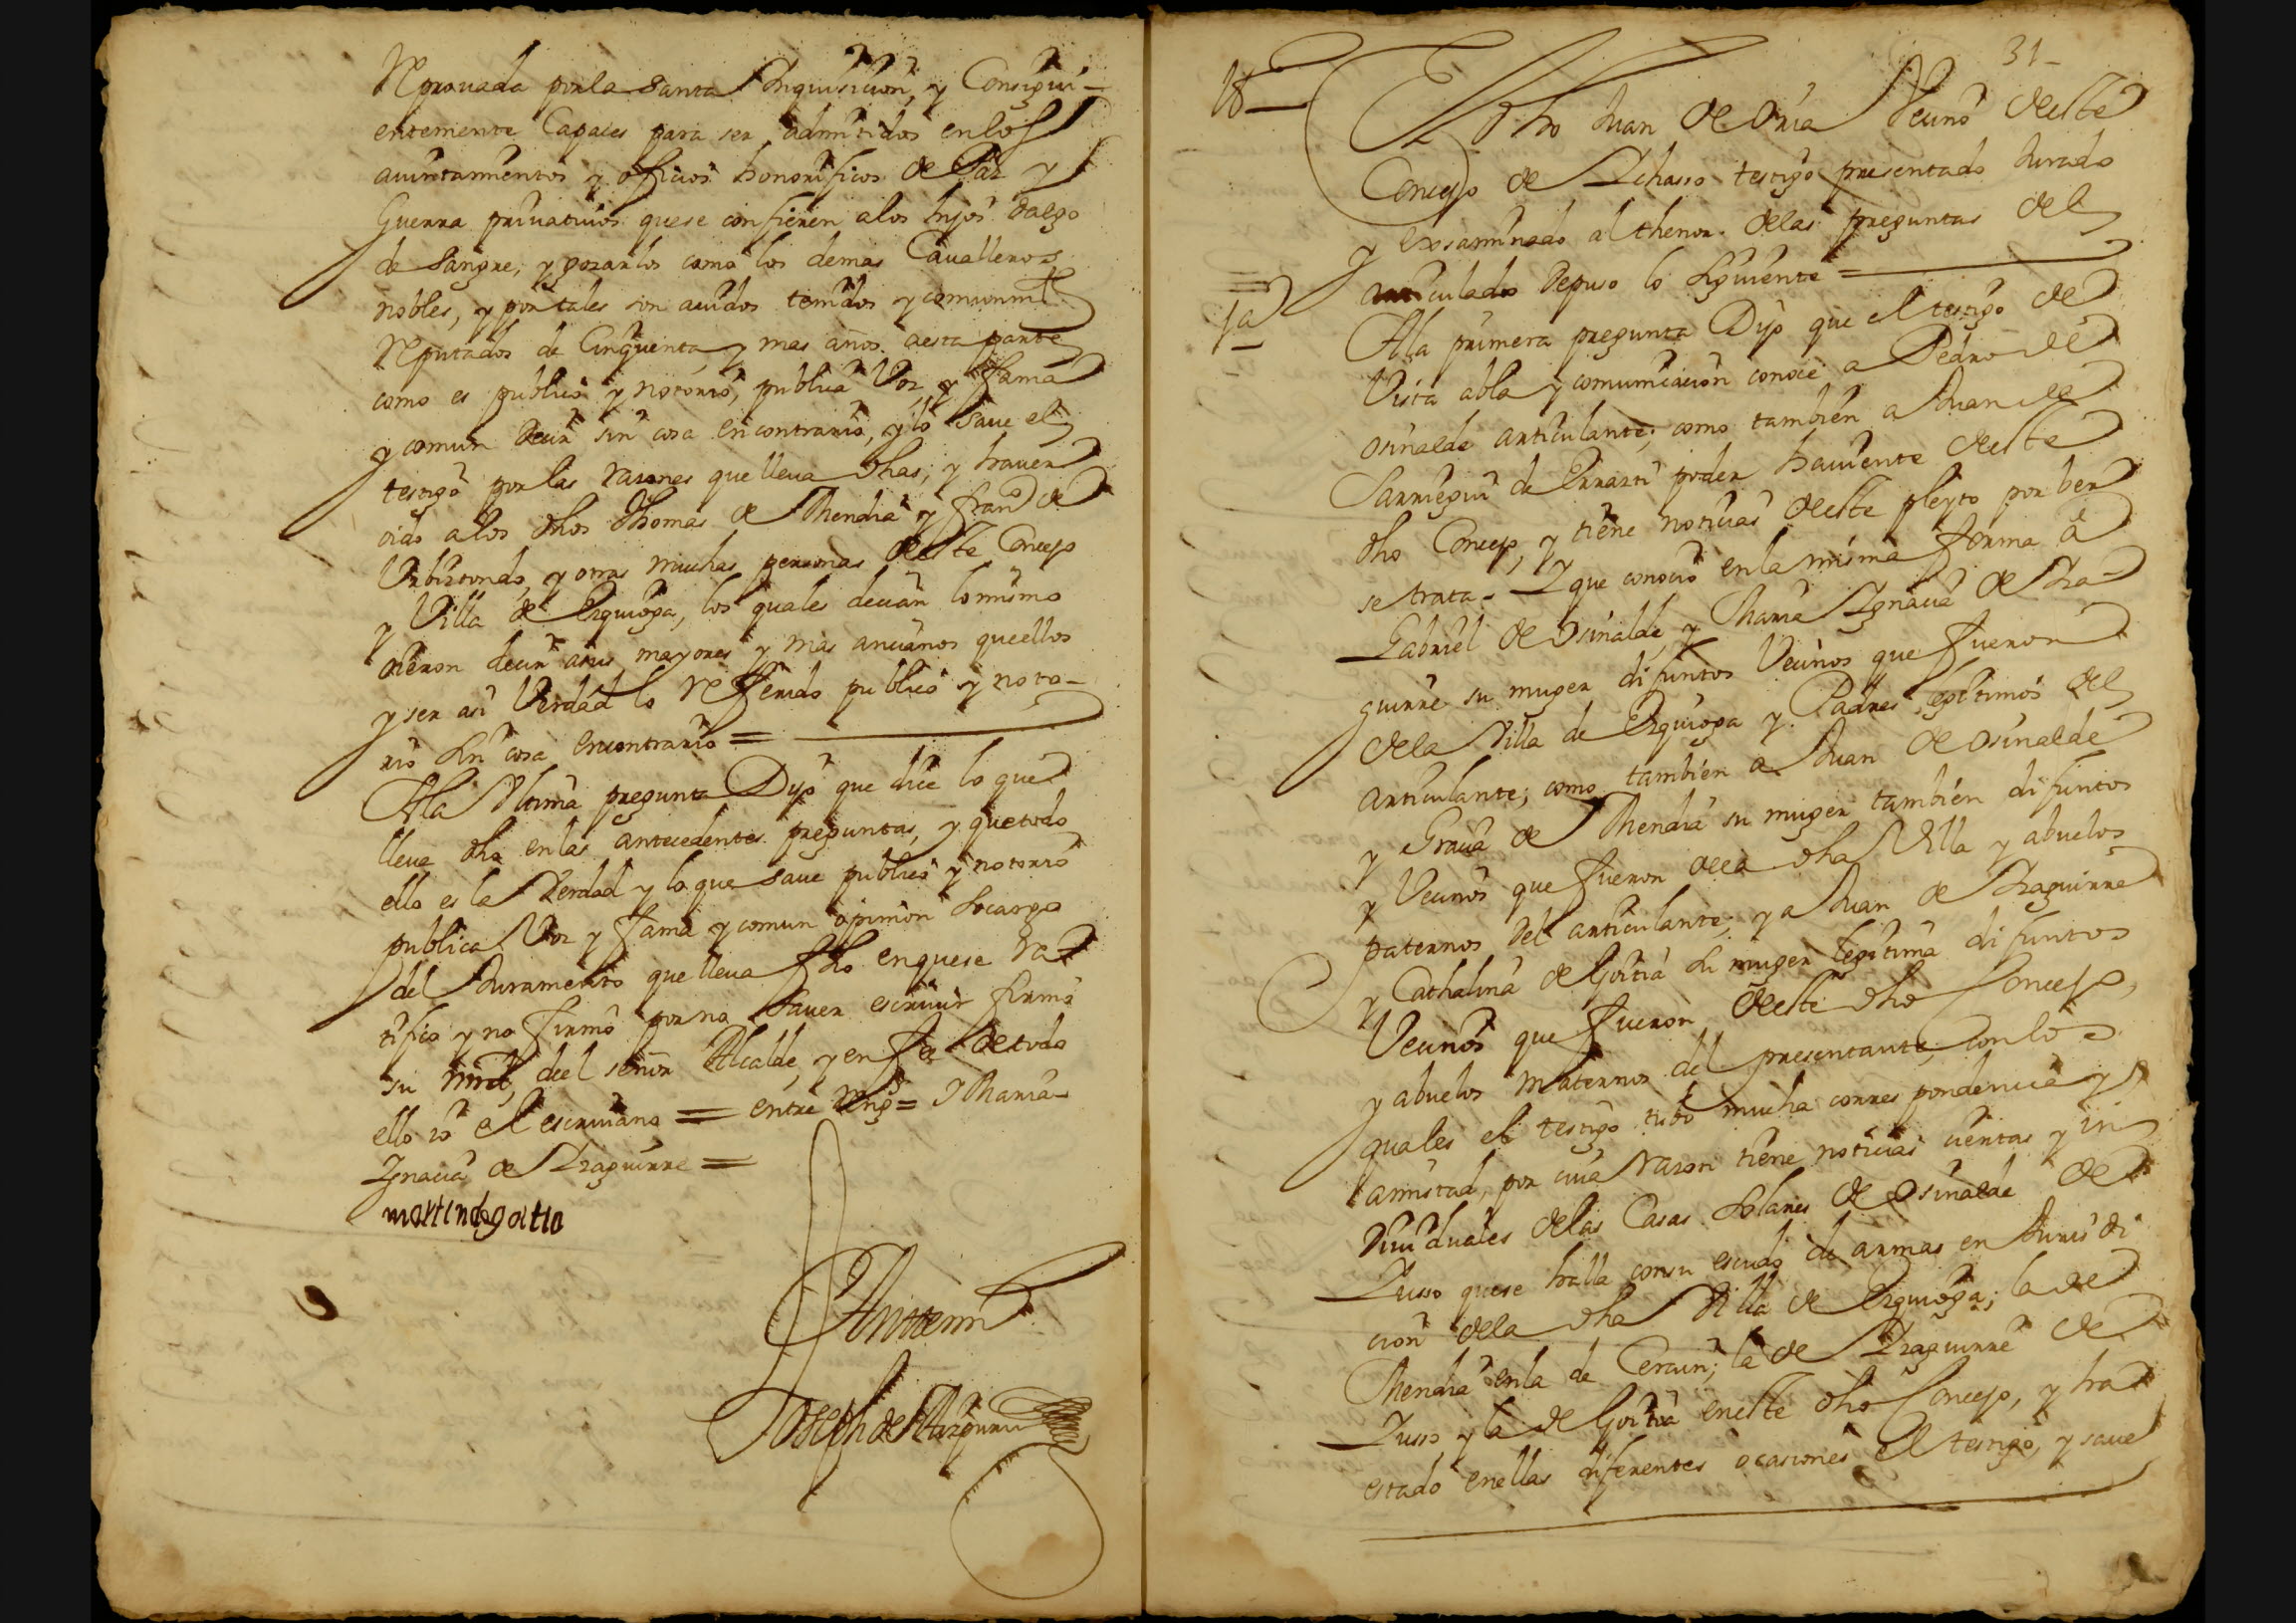 Reprouada por la Santa Inquisicion, y Consigui-
entemente Capaces para ser admitidos en los
auintamientos y oficios honorificos de Paz y
Guerra priuatiuos que se confieren a los hijos dalgo
de Sangre, y gozarlos como los demas Caualleros
nobles, y por tales son auidos tenidos y comunmte
Reputados de Cinquenta y mas años a esta parte
como es publico y notorio, publica Voz, y fama
y comun decir sin cosa en contrario, y lo saue el
testigo por las razones que lleua dhas, y hauer
oido a los dhos Thomas de Mendia y Franco de
Urbiztondo, y otras muchas personas deste Concejo
y Villa de Ezquioga, los quales decian lo mismo
oieron decir a sus mayores y mas ancianos que ellos
y ser asi Verdad lo Referido publico y noto-
rio sin cosa en contrario =
A la Ultima pregunta Dijo que dice lo que
lleua dho en las antecedentes preguntas, y que todo
ello es la Verdad y lo que saue publico y notorio
publica Voz y fama y comun opinion so cargo
del Juramento que lleua fho en que se ra-
tifico y no firmo por no sauer escriuir firmo
su mrd, del señor Alcalde, y en fee de todo
ello io el escriuano = entre Rengs = Maria
Ignacia de Izaguirre =
martin de goitia
Ante mi
Joseph de Aizpuru
31-
18-
El dho Juan de Oria Vecino deste
Concejo de Ichasso testigo presentado Jurado
y exsaminado al thenor de las preguntas del
articulado Depuso lo siguiente =
1a
A la primera pregunta Dijo que el testigo de
Vista abla y comunicacion conoce a Pedro de
osinalde articulante; como tambien a Juan de
Sarriegui de Errarti poder hauiente deste
dho Concejo, y tiene noticias deste pleyto por ber
se trata. I que conocio en la misma forma a
Gabriel de osinalde, y Maria Ignacia de Iza-
guirre su muger difuntos Vecinos que fueron
de la Villa de Ezquioga y Padres legitimos del
articulante; como tambien a Juan de osinalde
y Gracia de Mendia su muger tambien difuntos
y Vecinos que fueron de la dha Villa y abuelos
paternos del articulante; y a Juan de Izaguirre
y Cathalina de Goitia su muger legitima difuntos
Vecinos que fueron deste dho Concejo,
y abuelos maternos del presentante, con los
quales el testigo tubo mucha correspondencia y
amistad, por cuia razon tiene noticias ciertas y in
diuiduales de las Casas Solares de osinalde de
Zusso que se halla con su escudo de armas en Jurisdi
cion de la dha Villa de Ezquioga; la de
Mendia en la de Cerain; la de Izaguirre de
Zusso, y la de Goitia en este dho Concejo, y ha
estado en ellas diferentes ocasiones el testigo, y saue